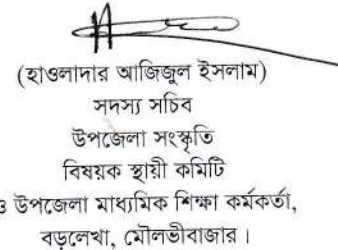 (হাওলাদার আজিজুল ইসলাম)
সদস্য সচিব
উপজেলা সংস্কৃতি
বিষয়ক স্থায়ী কমিটি
ও উপজেলা মাধ্যমিক শিক্ষা কর্মকর্তা,
বড়লেখা, মৌলভীবাজার।